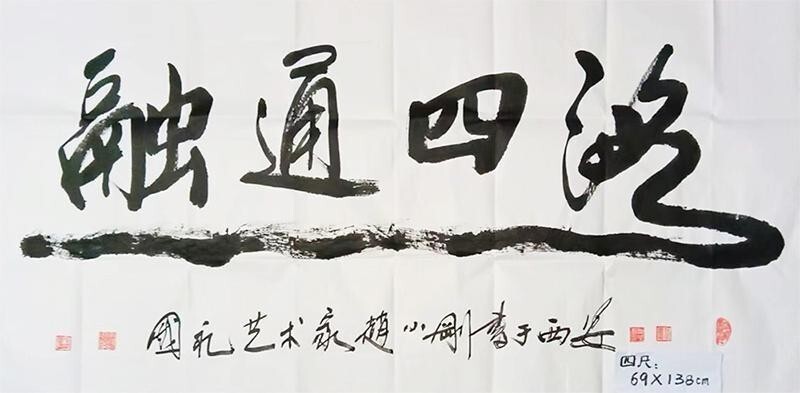 融通四海
國礼艺术家趙小剛書于西安
四尺：
69X138cm